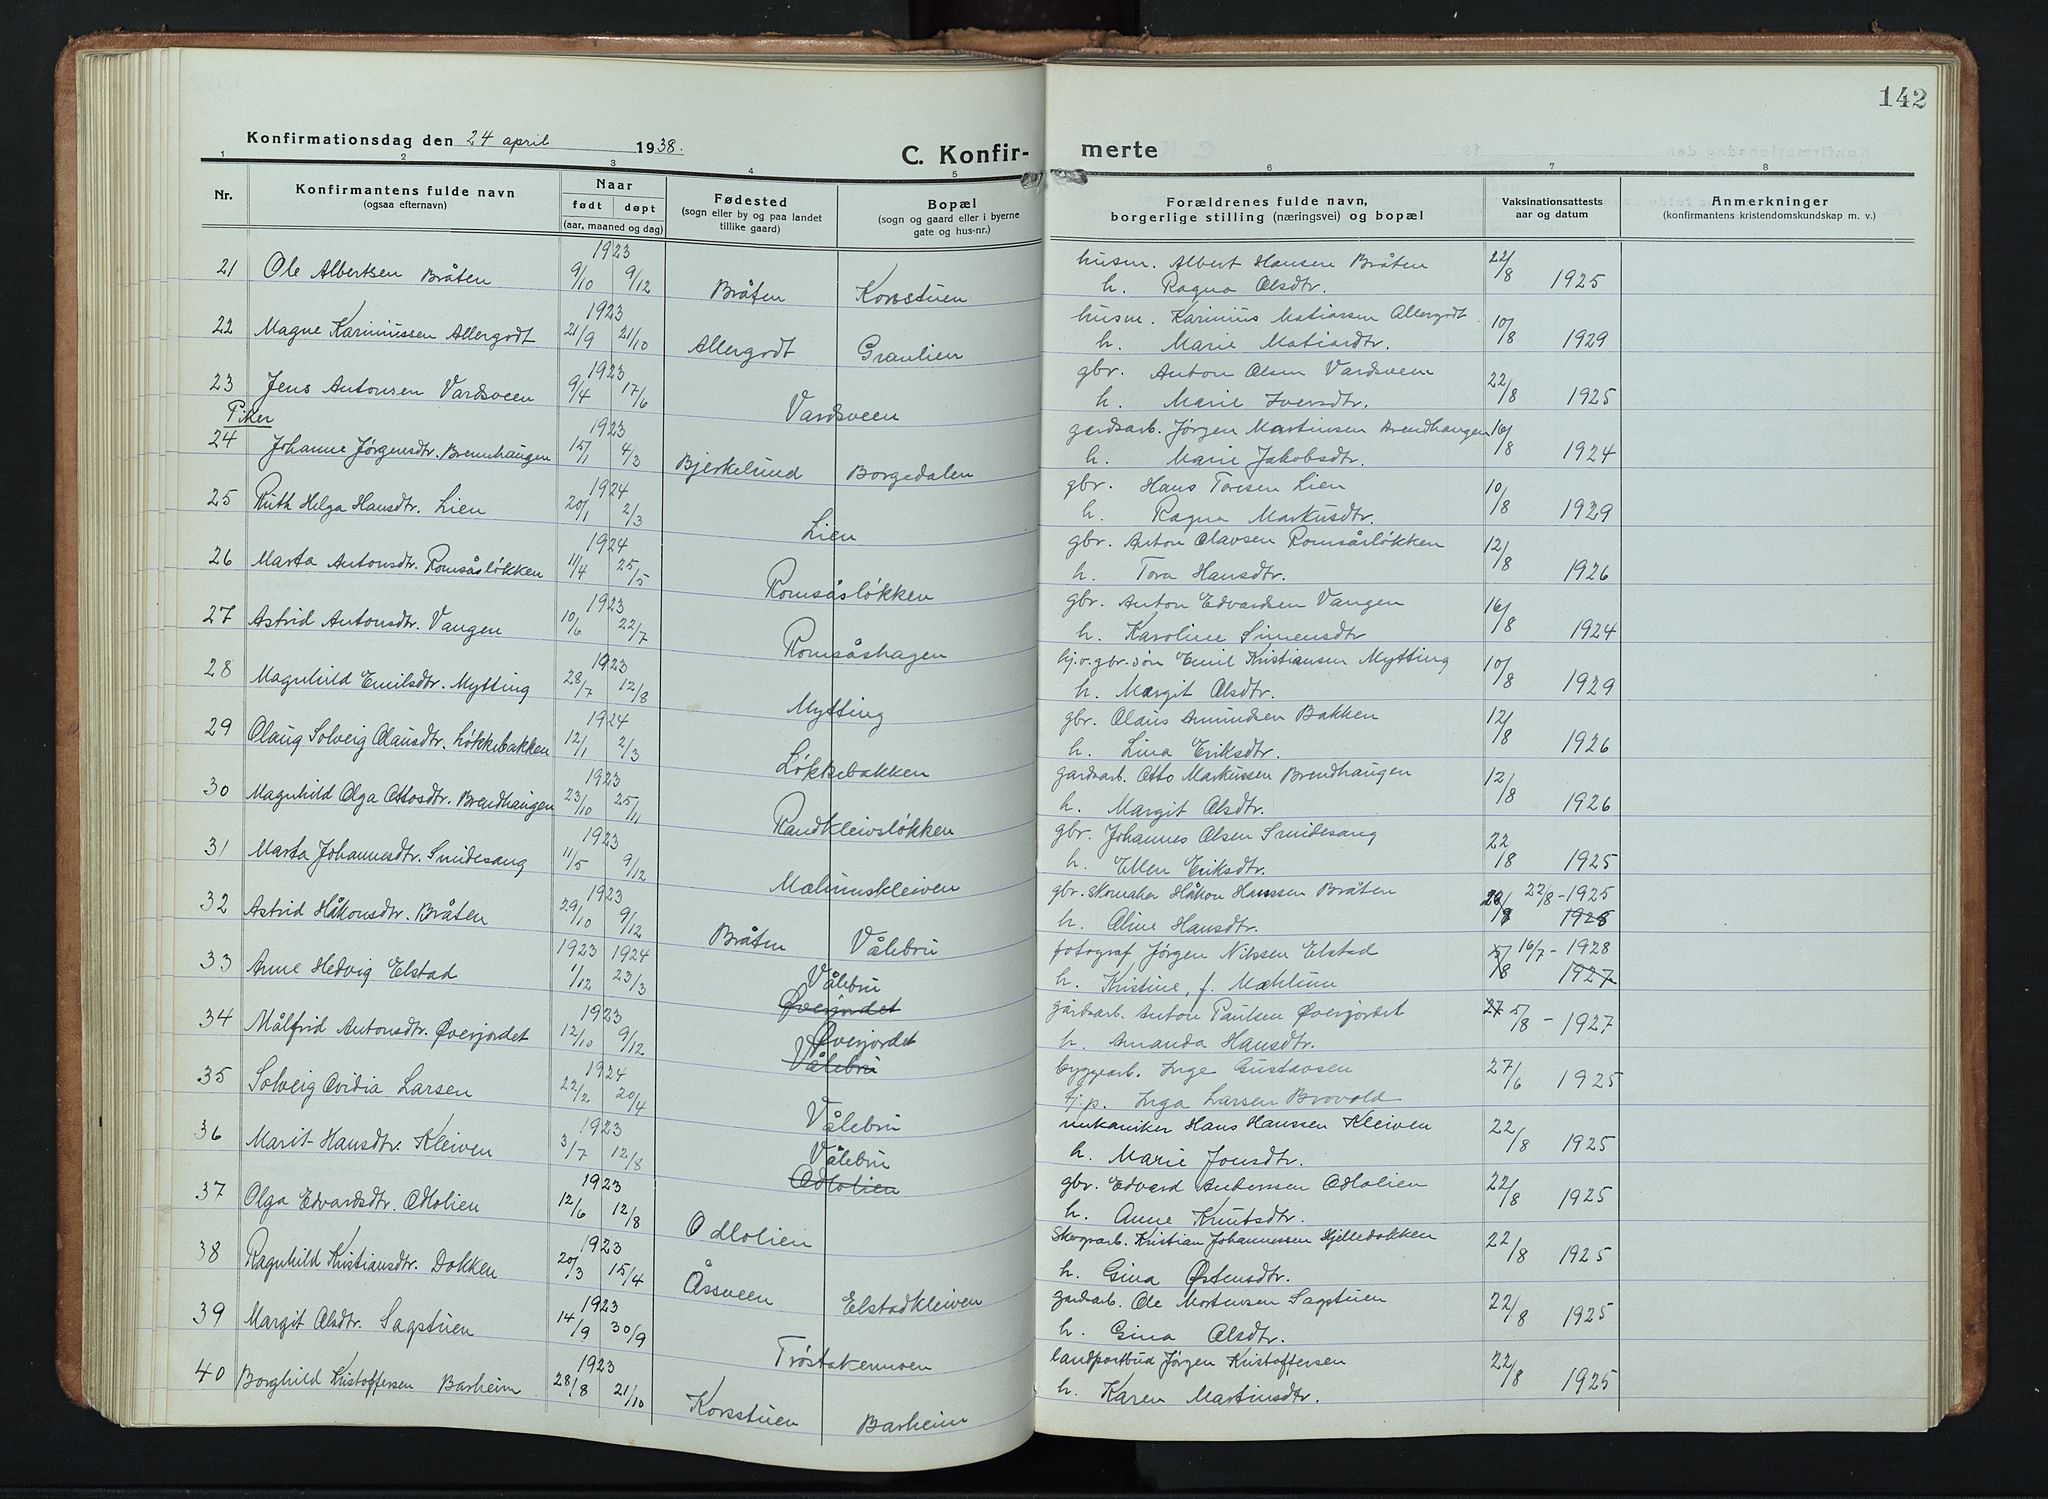 142
Konfirmationsdag den 24 april 1938.
C. Konfirmerte
1 2 3 4 5 6 7 8
Nr. Konfirmantens fulde navn (ogsaa efternavn) Naar født døpt (aar, maaned og dag) Fødested (sogn eller by og paa landet tillike gaard) Bopæl (sogn og gaard eller i byerne gate og hus-nr.) Forældrenes fulde navn, borgerlige stilling (næringsvei) og bopæl Vaksinationsattests aar og datum Anmerkninger (konfirmantens kristendomskundskap m. v.)
1923
21 Ole Albertsen Bråten 9/10 9/12 Bråten Korsstuen husm. Albert Hansen Bråten 22/8 1925
h. Ragna Olsdtr.
1923
22 Magne Kariniussen Allergodt 21/9 21/10 Allergodt Graulien husm. Karinius Matiassen Allergodt 10/8 1929
h. Marie Matiasdtr.
1923
23 Jens Antonsen Vardsveen 9/4 17/6 Vardsveen gbr. Anton Olsen Vardsveen 22/8 1925
h. Marie Iversdtr.
Piker
1923
24 Johanne Jørgensdtr. Brennhaugen 15/1 4/3 Bjerkelund Borgedalen gardsarb. Jørgen Martinsen Brendhaugen 16/8 1924
h. Marie Jakobsdtr.
1924
25 Ruth Helga Hansdtr. Lien 20/1 2/3 Lien gbr. Hans Toresen Lien 10/8 1929
h. Ragna Markusdtr.
1924
26 Marta Antonsdtr. Romsåsløkken 11/4 25/5 Romsåsløkken gbr. Anton Olavsen Romsåsløkken 12/8 1926
h. Tora Hansdtr.
1923
27 Astrid Antonsdtr. Vangen 10/6 22/7 Romsåshagen gbr. Anton Edvardsen Vangen 16/8 1924
h. Karoline Simensdtr
1923
28 Magnhild Emilsdtr. Mytting 28/7 12/8 Mytting hj.v. gbr.søn Emil Kristiansen Mytting 10/8 1929
h. Margit Olsdtr.
1924
29 Olaug Solveig Olausdtr. Løkkebakken 12/1 2/3 Løkkebakken gbr. Olaus Amundsen Bakken 12/8 1926
h. Lina Eriksdtr.
1923
30 Magnhild Olga Ottosdtr. Brendhaugen 23/10 25/11 Randkleivsløkken gardsarb. Otto Markussen Brendhaugen 12/8 1926
h. Margit Olsdtr.
1923
31 Marta Johannesdtr. Smidesang 11/5 9/12 Mælumskleiven gbr. Johannes Olsen Smidesang 22/8 1925
h. Ellen Eriksdtr.
1923
32 Astrid Håkonsdtr. Bråten 29/10 9/12 Bråten Vålebru gbr. skomaker Håkon Hanssen Bråten 22/8 - 1925
h. Aline Hansdtr. 1928
1923 1924
33 Anne Hedvig Elstad 1/12 23/3 Vålebru Øverjordet fotograf Jørgen Nilssen Elstad 5/8 16/7 - 1928
h. Kristine, f. Mæhlum 1927
1923
34 Målfrid Antonsdtr. Øverjordet 12/10 9/12 Øverjordet Vålebru gårdsarb. Anton Paulsen Øverjordet 27 5/8 - 1927
h. Amanda Hansdtr.
1924
35 Solveig Ovidia Larsen 22/2 20/4 Vålebru byggearb. Inge Gustavsen 27/6 1925
tj.p. Inga Larsen Brovold
1923
36 Marit Hansdtr. Kleiven 3/7 12/8 Vålebru Odlolien mekaniker Hans Hanssen Kleiven 22/8 1925
h. Marie Jonsdtr.
1923
37 Olga Edvardsdtr. Odlolien 12/6 12/8 Odlolien gbr. Edvard Anderssen Odlolien 22/8 1925
h. Anne Knutsdtr.
1923
38 Ragnhild Kristiansdtr. Dokken 20/3 15/4 Åssveen Elstadkleiven Skogsarb. Kristian Johannessen Hjelledokken 22/8 1925
h. Gina Østensdtr.
1923
39 Margit Olsdtr. Sagstuen 14/9 30/9 Trøstakermoen gardsarb. Ole Mortensen Sagstuen 22/8 1925
h. Gina Olsdtr.
1923
40 Borghild Kristoffersen Barheim 28/8 21/10 Korsstuen Barheim landpostbud Jørgen Kristoffersen 22/8 1925
h. Karen Martinsdtr.